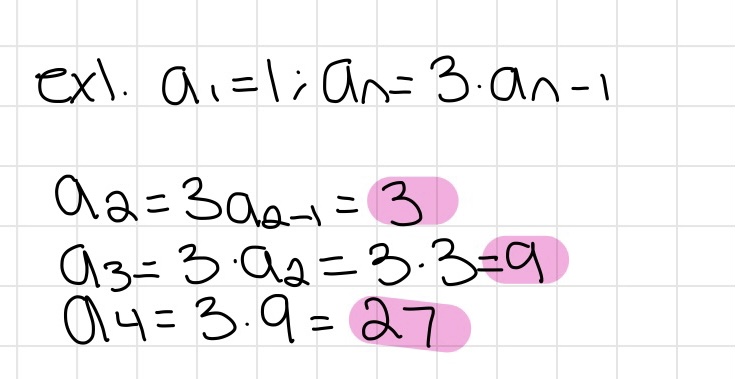 ex1. a₁=1; aₙ= 3·aₙ₋₁
a₂=3a₂₋₁ = 3
a₃= 3·a₂ = 3·3=9
a₄= 3·9= 27